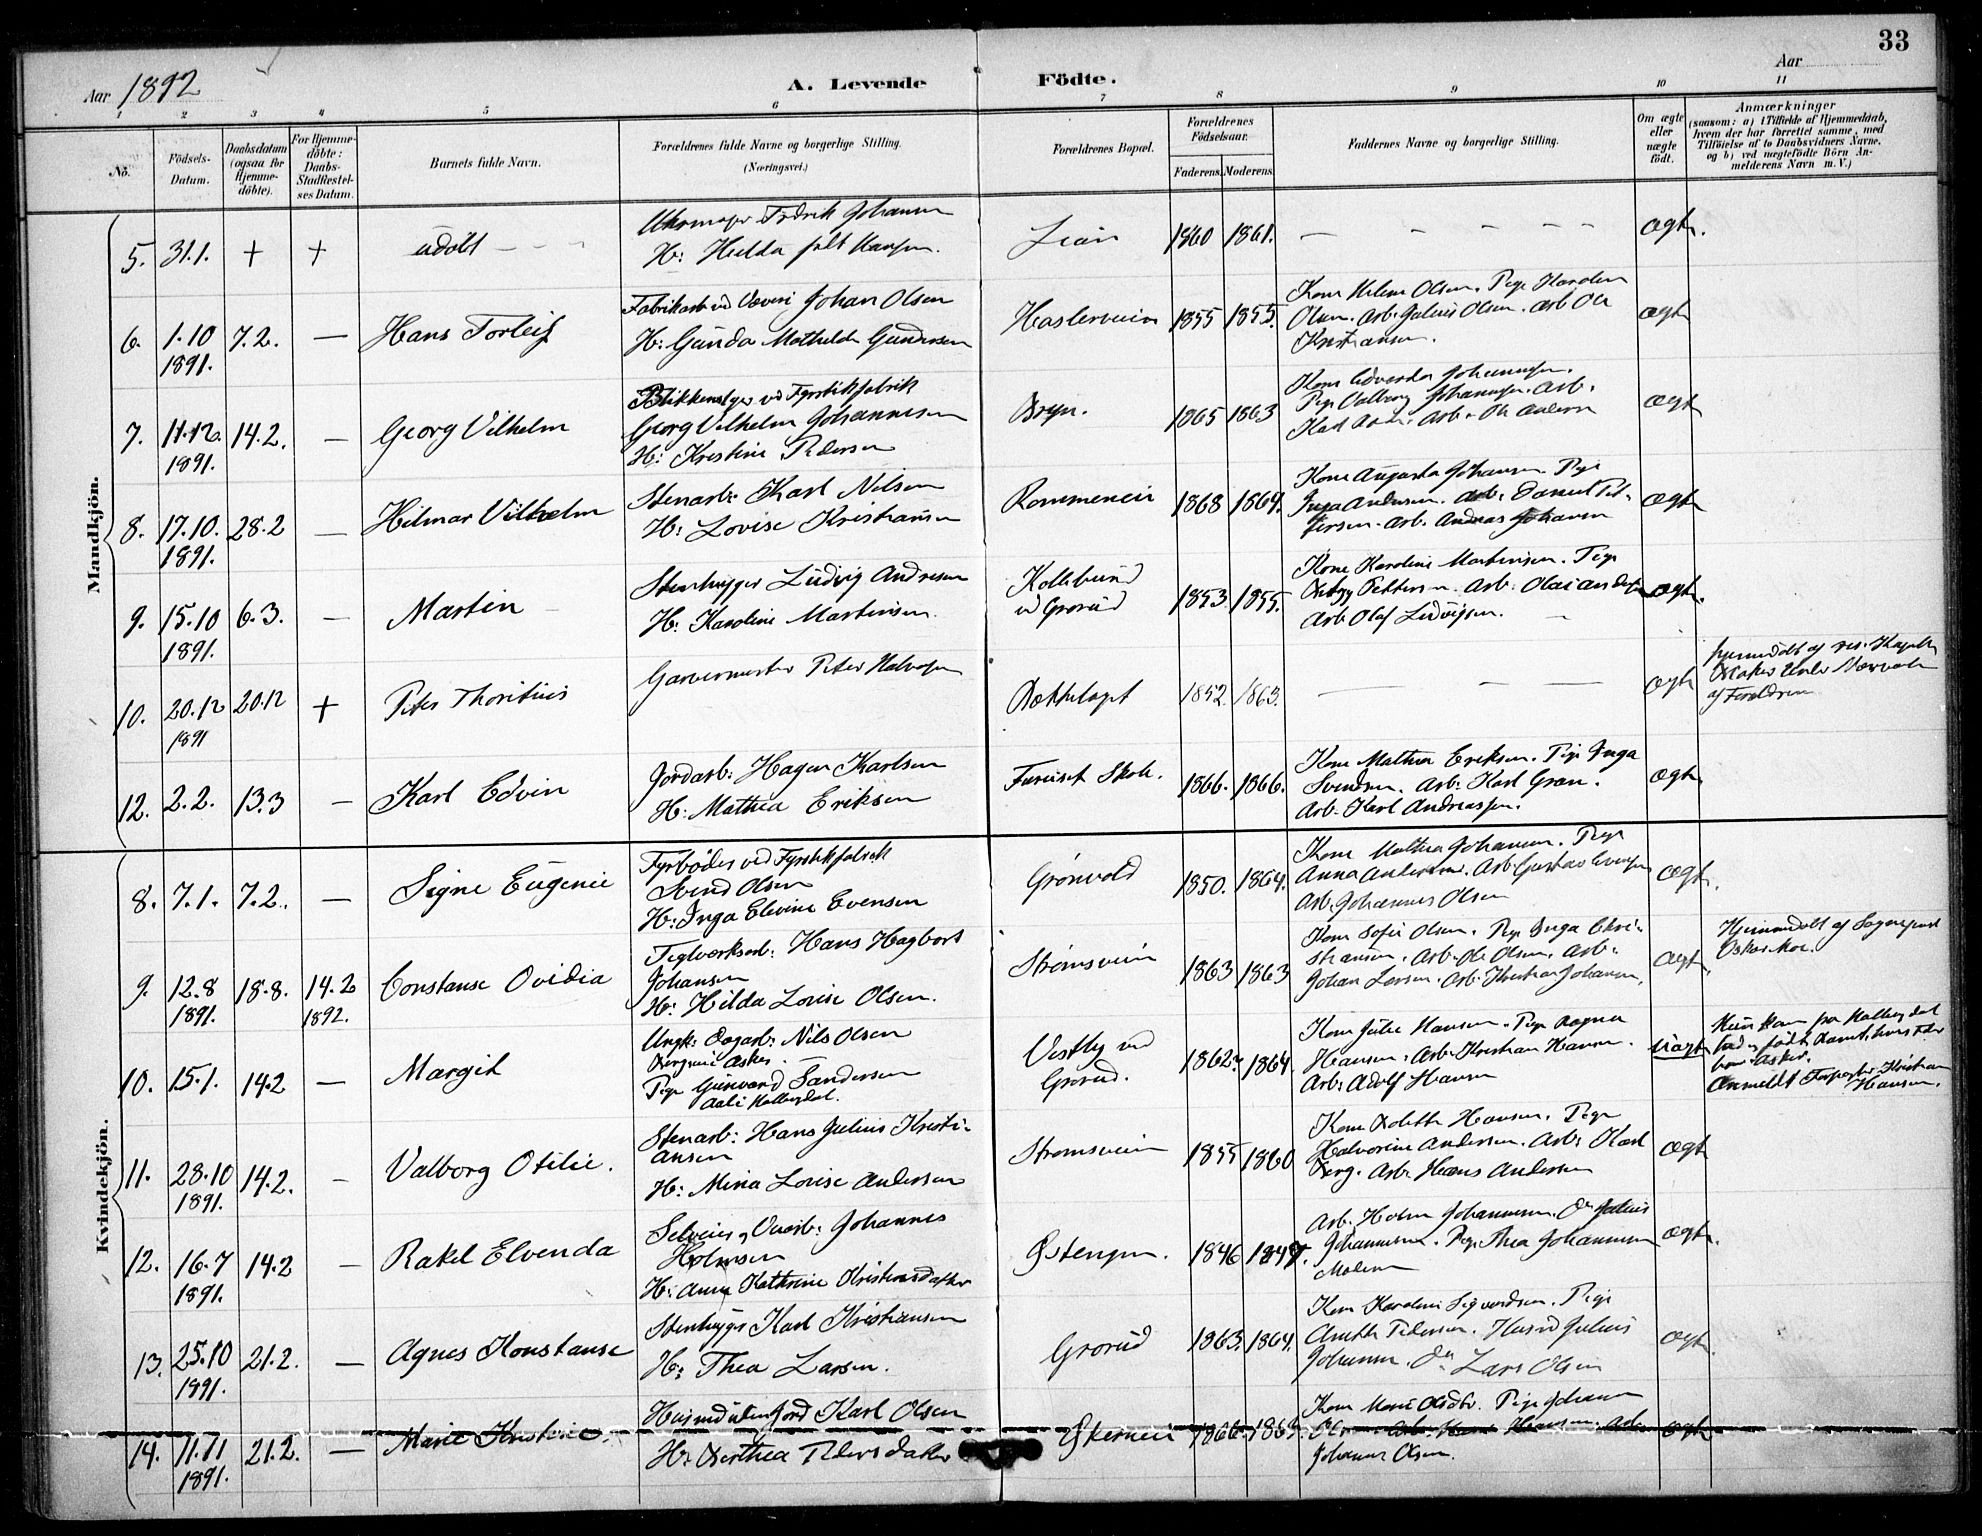 33
Aar 1892
A. Levende Födte.
Aar
1 2 3 4 5 6 7 8 9 10 11
No.
Födsels-Datum.
Daabsdatum (ogsaa for Hjemme-döbte).
For Hjemme-döbte: Daabs-Stadfæstel-ses Datum.
Barnets fulde Navn.
Forældrenes fulde Navne og borgerlige Stilling.
(Næringsvei.)
Forældrenes Bopæl.
Forældrenes Födselsaar.
Faderens. Moderens.
Faddernes Navne og borgerlige Stilling.
Om ægte eller uægte födt.
Anmærkninger
(saasom: a) i Tilfælde af Hjemmedaab,
hvem der har forrettet samme, med
Tilföielse af to Daabsvidners Navne,
og b) ved uægtefödte Börn An-
melderens Navn m. V.)
Mandkjön.
5. 31.1. + + udöbt
Fredrik Johansen
H: Hulda Hansen.
1860 1861. ægte.
6. 1.10 1891. 7.2. — Hans Torleif
Fabrikarb. ved Væveri Johan Olsen
H: Gunda Mathilde Gundersen
Haslerveien 1855 1855.
Kone Helene Olsen. Pige Karoline
Olsen. Arb. Julius Olsen. Arb Ole
Kristiansen.
ægte
7. 11.12. 1891. 14.2. — Georg Vilhelm
ved Fyrstikfabrik
Georg Vilhelm Johannesen
H: Kristine Pedersen
Bryn. 1865 1863
Pige Valborg Johannesen. Arb.
ægte
8. 17.10. 1891. 28.2 — Hilmar Vilhelm
Stenarb: Karl Nilsen
H: Lovise Kristiansen
1868 1864.
Kone Augusta Johansen. Pige
Inga Andersen. Arb. Daniel Pet-
tersen. Arb. Andreas Johansen
ægte
9. 15.10 1891. 6.3. — Martin
Stenhugger Ludvig Andresen
H: Karoline Martinsen.
Kallebund
v/ Grorud
1853 1855.
Kone Karoline Martinsen. Pige
Pettersen. Arb. Olai Andersen
Arb Olaf Ludvigsen.
ægte.
10. 20.12 1891 20.12 + Peter Thoritius
Garvermester Peter Halvorsen
1852. 1863.
ægte
hjemmedöbt af res. Kapellan
af Forældrene
12. 2.2. 13.3 — Karl Edvin
Jordarb: Hagen Karlsen
H: Mathea Eriksen
Furuset Skole. 1866. 1866.
Kone Mathea Eriksen. Pige Inga
Svendsen. Arb: Karl Gran.
Arb. Karl Andreassen.
ægte
Kvindekjön.
8. 7.1. 7.2. — Signe Eugenie
Fyrböder ved Fyrstikfabrik
Svend Olsen
H: Inga Elevine Evensen
Grönvold 1850. 1864.
Kone Mathea Johansen. Pige
Anna Andersen. Arb. Gustav Evensen
Arb. Johannes Olsen
ægte.
9. 12.8 1891. 18.8. 14.2 1892. Constanse Ovidia
Teglverksarb: Hans Hagbart
Johansen
H: Hilda Lovise Olsen.
Strömsveien 1863 1863
Kone Sofie Olsen. Pige Inga Chri-
stiansen. Arb. Ole Olsen. Arb.
Johan Larsen. Arb. Kristian Johansen.
ægte.
Hjemmedöbt af Sogneprest
10. 15.1. 14.2 — Margit
Ungk: Dagarb: Nils Olsen
Asker.
Pige Gunvord Sandersen
Aal i Hallingdal.
Vestby ved
Grorud.
1862. 1864.
Kone Julie Hansen. Pige Ragna
Hansen. Arb. Kristian Hansen.
Arb. Adolf Hansen
uægte
Anmeldt Kristian
Hansen.
11. 28.10 1891. 14.2. — Valborg Otilie.
Stenarb: Hans Julius Kristi-
ansen
H: Mina Lovise Andersen
Strömsveien 1855 1860
Hansen. Pige
Halvorine Andersen. Arb. Karl
Berg. Arb. Hans Andersen
ægte
12. 16.7 1891. 14.2 — Rakel Elvenda
Selveier, Johannes
Holmsen
H: Anna Kathrine Kristiansdatter
Östengen. 1846
Arb. Holm Johannesen. Do Julius
Johannesen. Pige Thea Johannesen
ægte.
13. 25.10 1891. 21.2. — Agnes Konstanse
Stenhugger Karl Kristiansen
H: Thea Larsen.
Grorud 1863. 1864.
Kone Karoline Sigvardsen. Pige
Anette Pedersen. Husm Julius
Johansen. Do Lars Olsen
ægte.
14. 11.11 1891. 21.2. — Marie Kristine.
Husmd uden Jord Karl Olsen
H: Berthea Pedersdatter
1866.
Kone Marie Olsdtr. Pige Johanne
Johannes Olsen.
ægte